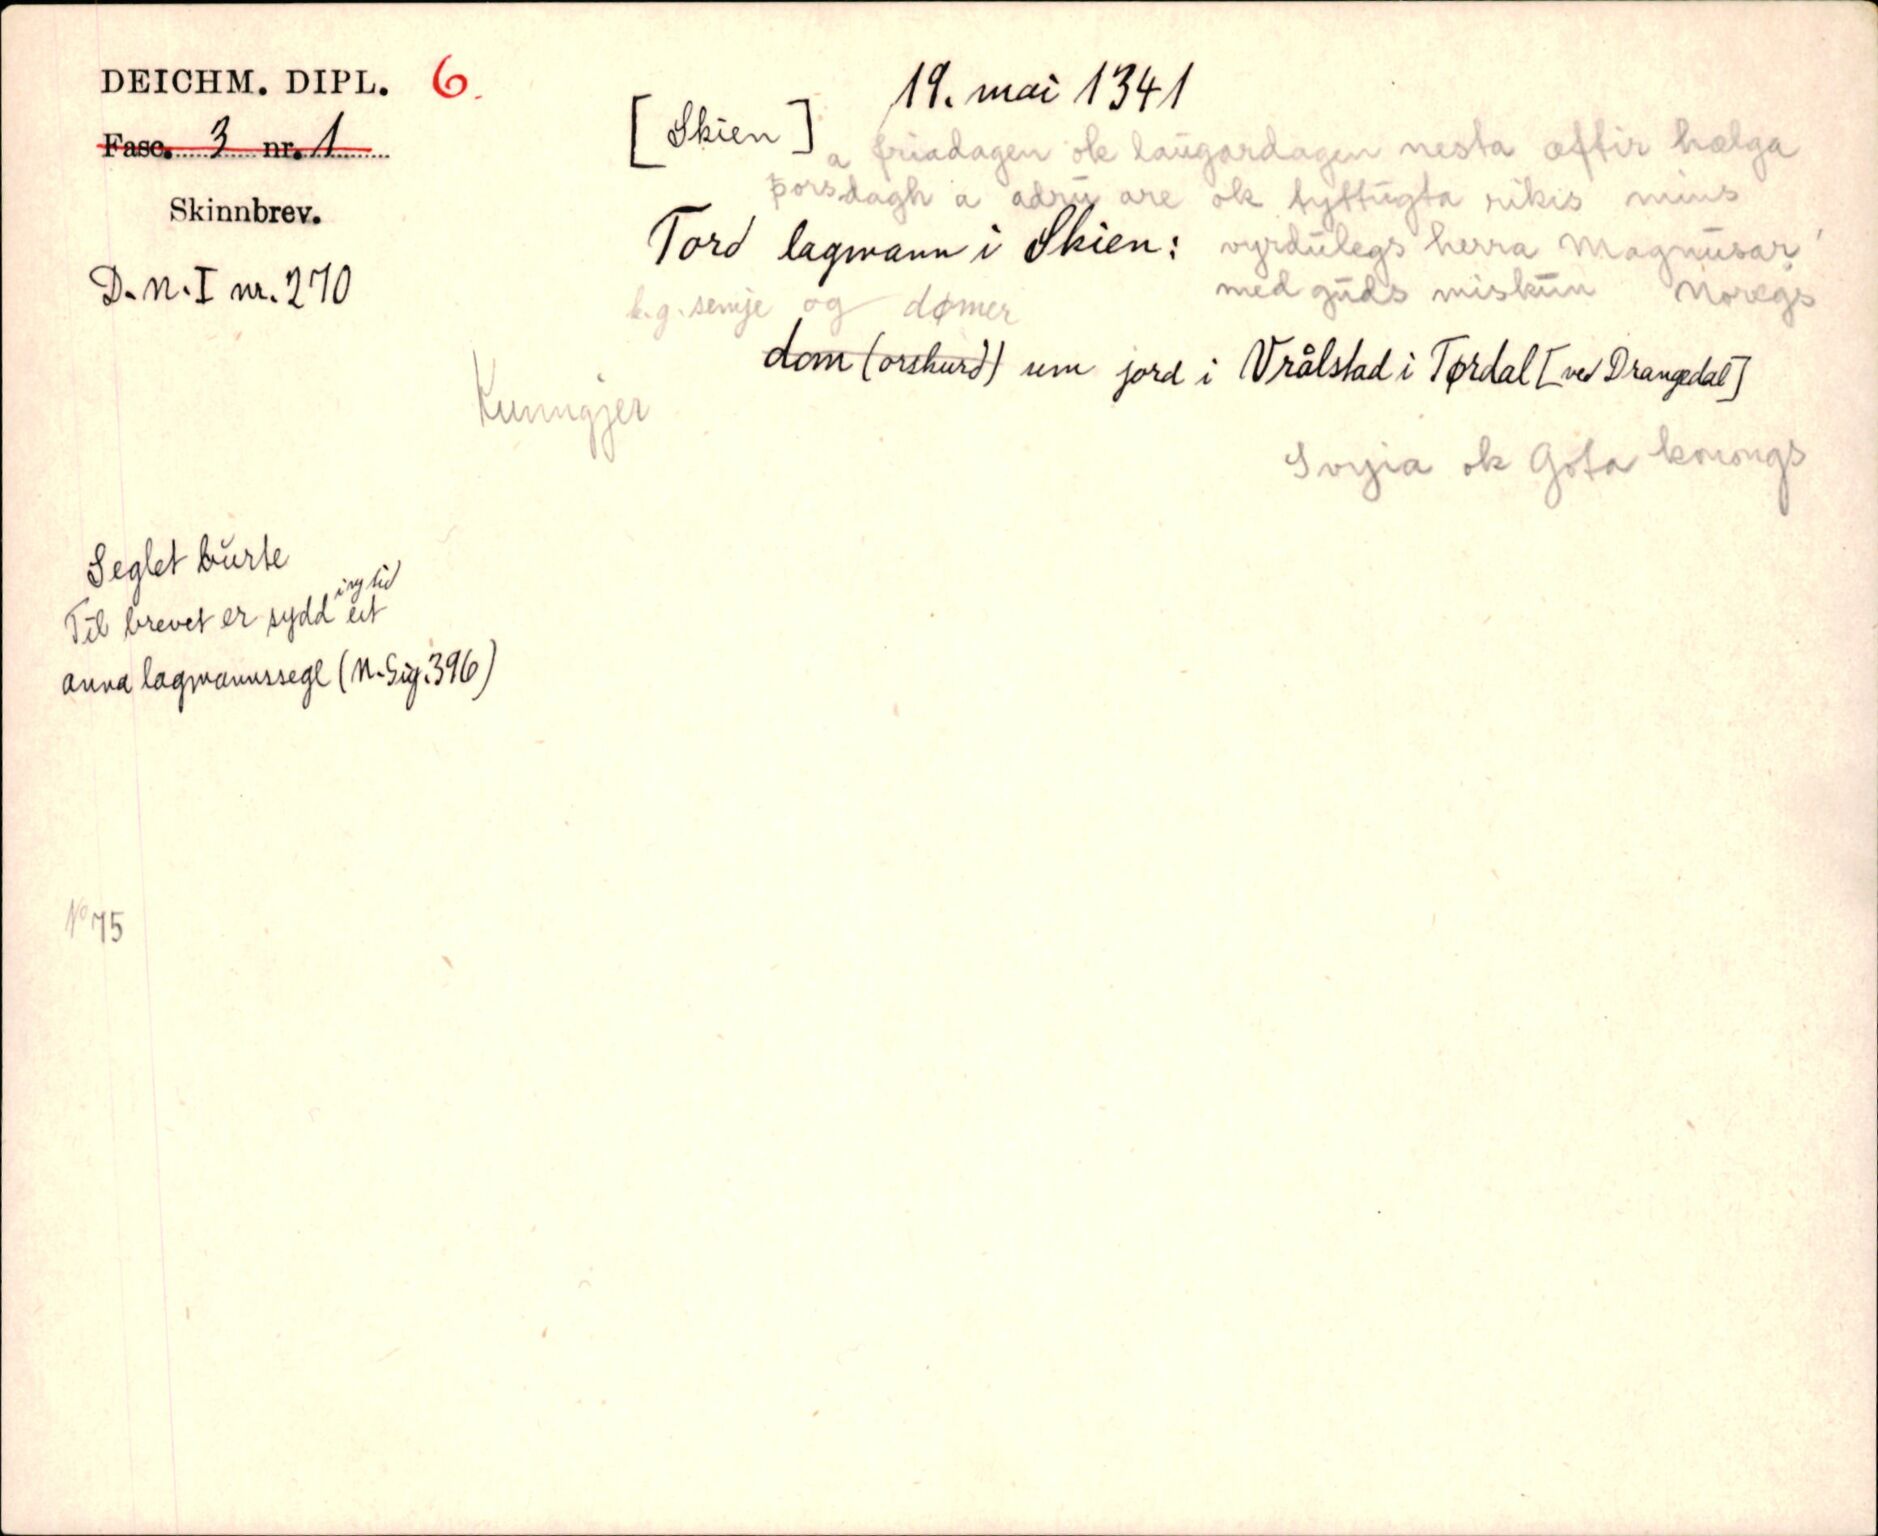 DEICHM. DIPL. 6.
Fasc. 3 nr. 1
Skinnbrev.
D.N. I nr. 270
19. mai 1341
[Skien]
a friadagen ok laugardagen nesta æftir hælga
þorsdagh a adru are ok tyttugta rikis mins
Tord lagmann i Skien: vyrdulegs herra Magnusar
med guds miskun Noregs
k.g. semje og dømer
dom (orskurd) um jord i Vrålstad i Tørdal [ved Drangedal]
Kunngjer
Svyia ok Gota konongs
Seglet burte
Til brevet er sydd i ny tid eit
anna lagmannssegl (N. Sig. 396)
No 75